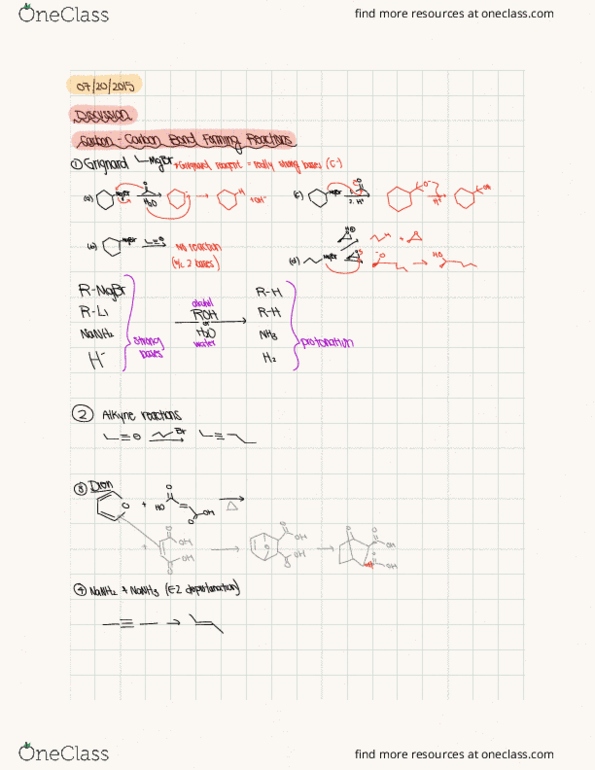 OneClass
find more resources at oneclass.com
07/20/2015
Discussion
Carbon-Carbon Bond Forming Reactions
① Grignard MgBr *Grignard reagent = really strong bases (C⁻)
(a) MgBr H₂O H + OH⁻
(c) MgBr 2. H⁺ O⁻ H⁺ OH
(b) MgBr No reaction
(b/c 2 bases)
(d) MgBr H O⁻ HO
R-MgBr
R-Li
NaNH₂
H⁻
strong
bases
alcohol
ROH
or
H₂O
water
R-H
R-H
NH₃
H₂
protonation
② Alkyne reactions
Br
③
O + HO O O OH Δ
+ O OH O OH
O O OH O OH
O O OH O OH
④ NaNH₂ + NaNH₃ (E2
OneClass
find more resources at oneclass.com